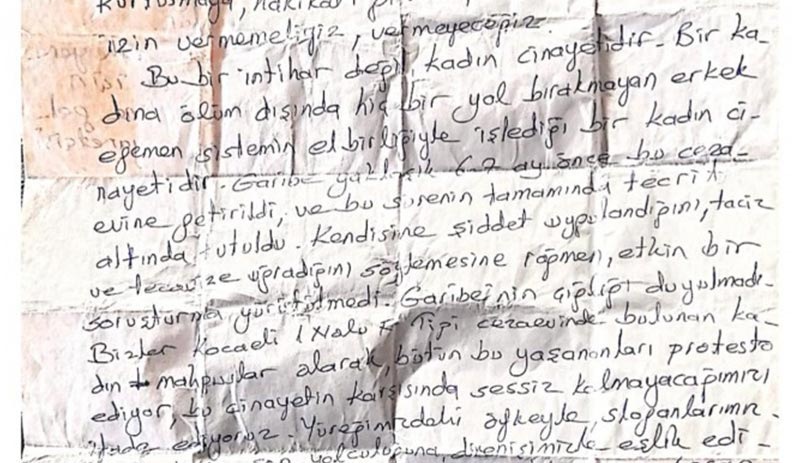 izin vermemeliyiz, vermeyeceğiz.
Bu bir intihar değil, kadın cinayetidir. Bir ka-
dına ölüm dışında hiç bir yol bırakmayan erkek
egemen sistemin elbirliğiyle işlediği bir kadın ci-
nayetidir. Garibe yaklaşık 6-7 ay önce bu ceza-
evine getirildi, ve bu sürenin tamamında tecrit
altında tutuldu. Kendisine şiddet uygulandığını, taciz
ve tecavüze uğradığını söylemesine rağmen, etkin bir
soruşturma yürütülmedi. Garibe'nin çığlığı duyulmadı.
Bizler Kocaeli 1 Nolu F Tipi cezaevinde bulunan ka-
dın mahpuslar olarak, bütün bu yaşananları protesto
ediyor, bu cinayetin karşısında sessiz kalmayacağımızı
ifade ediyoruz. Yüreğimizdeki öfkeyle, sloganlarımız
yolculuğuna, direnişimizle eşlik edi-